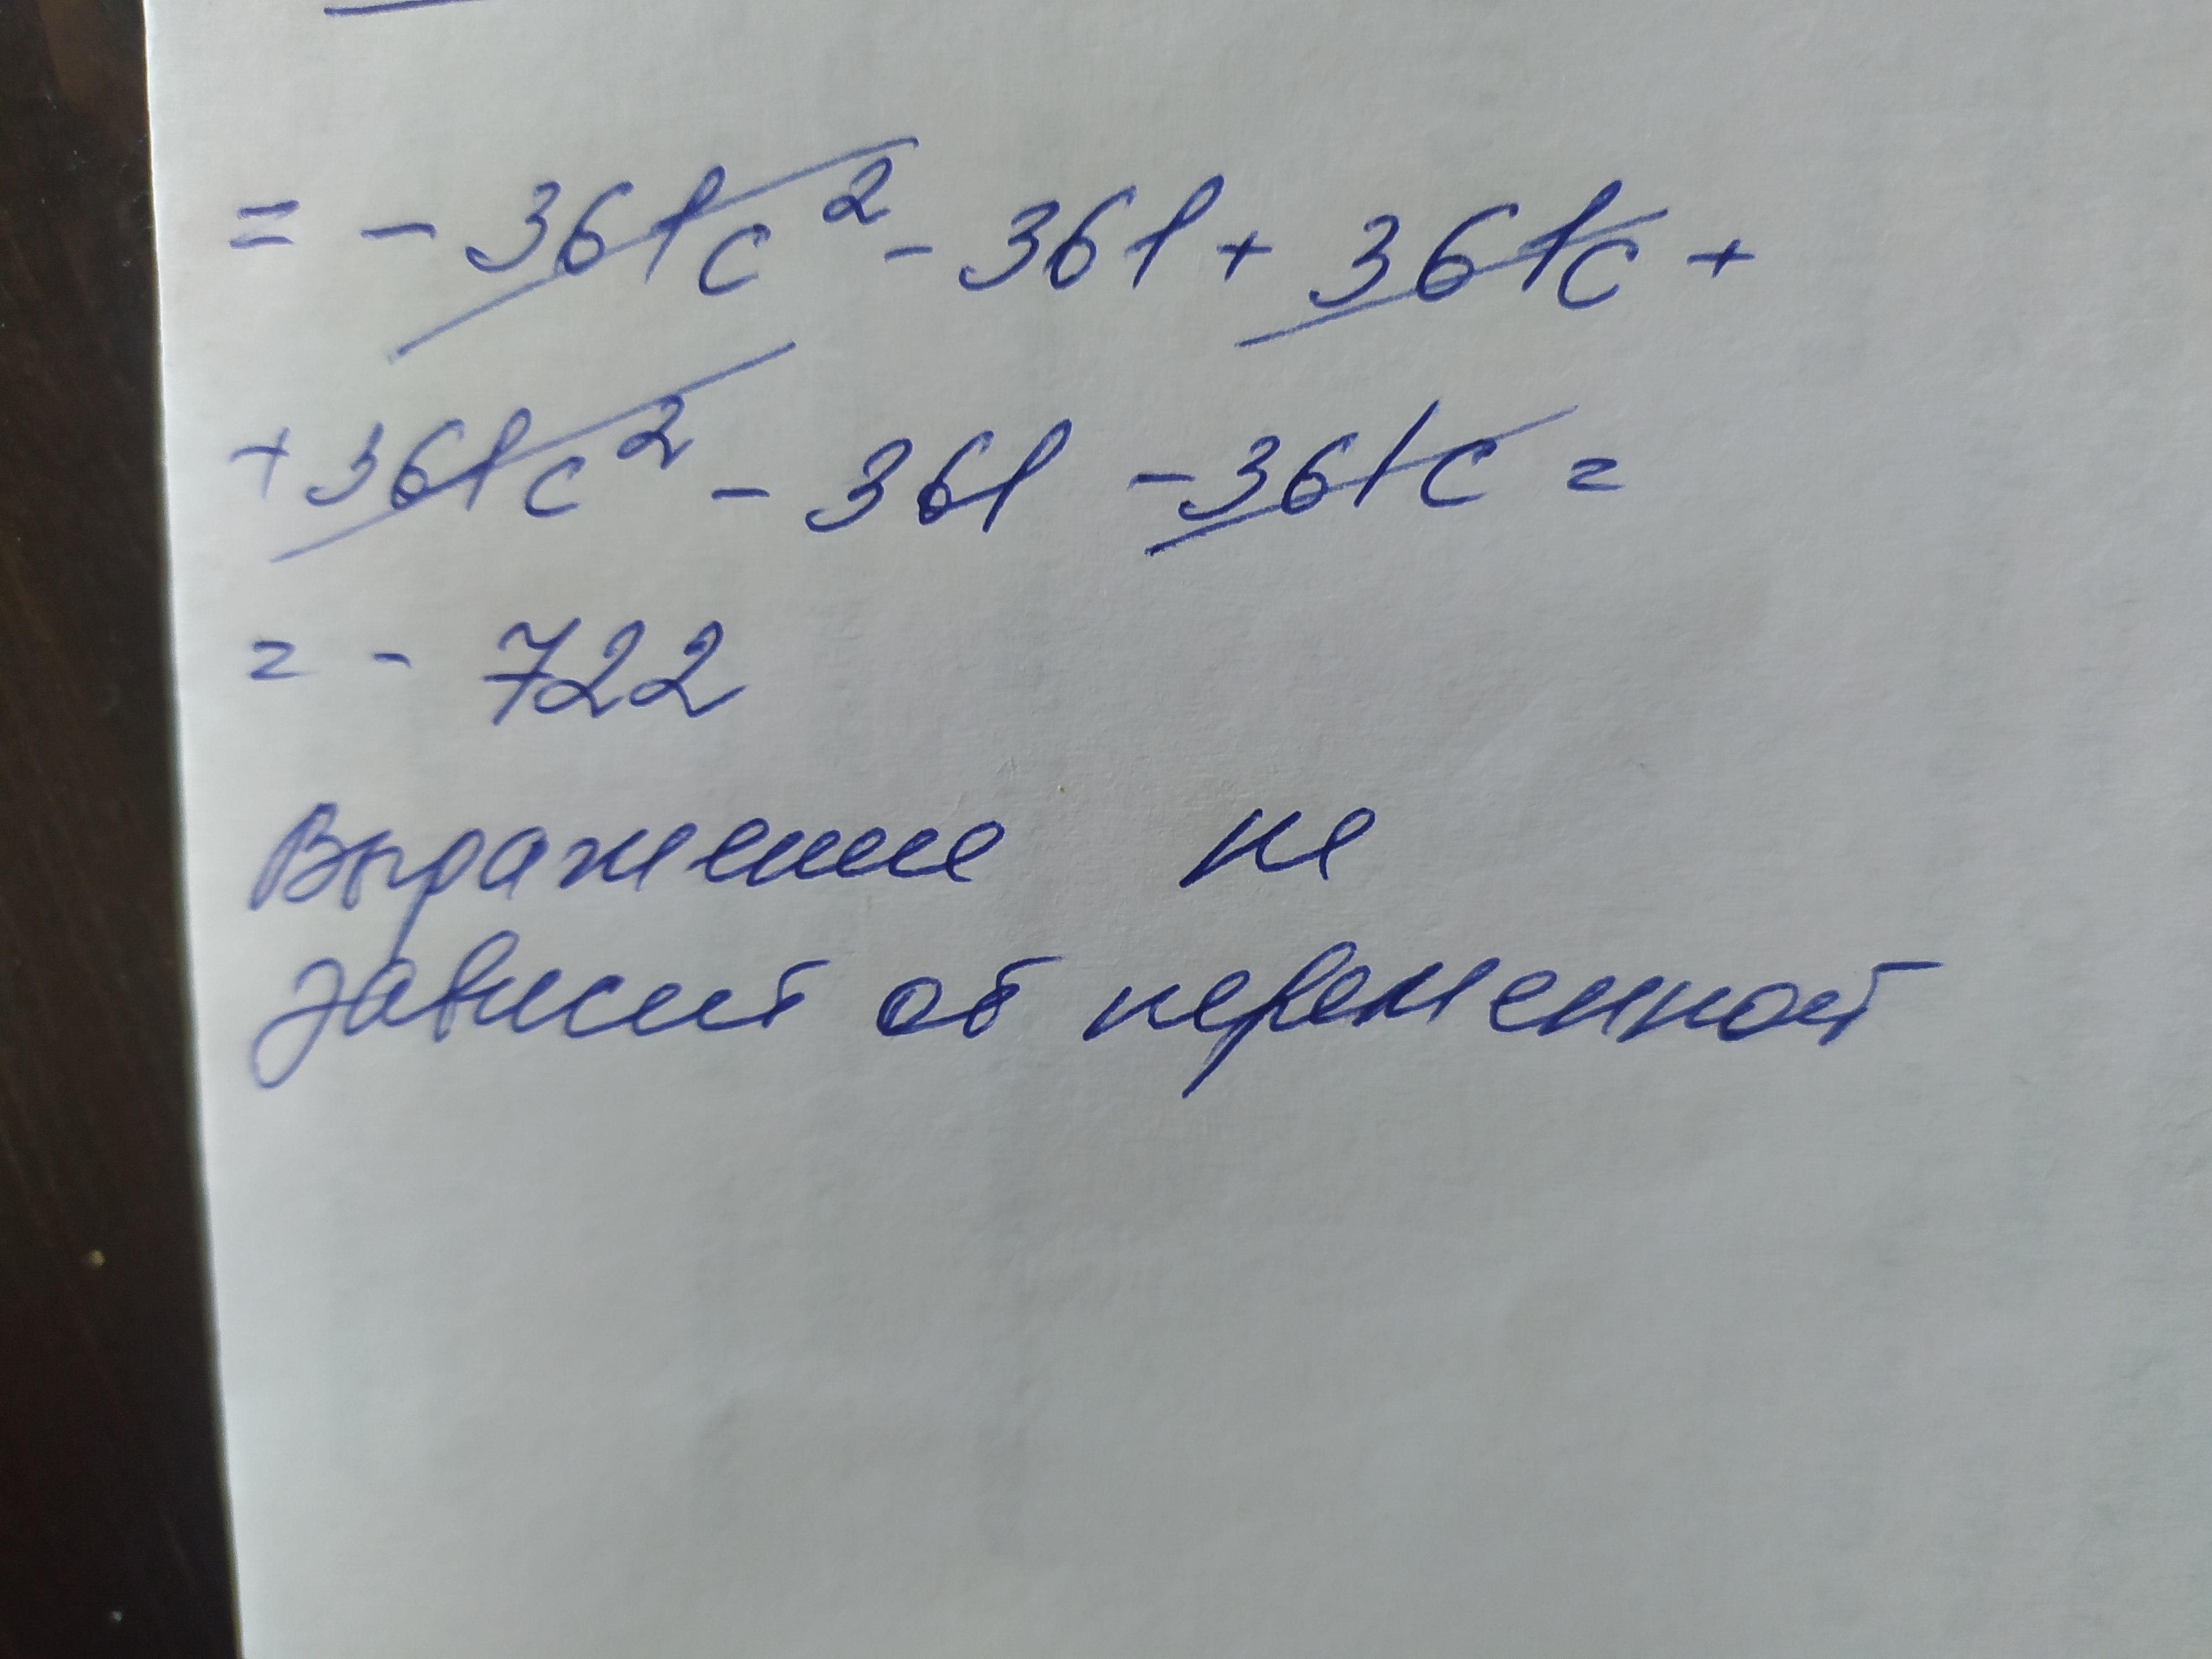 = - 361c² - 361 + 361c +
+ 361c² - 361 - 361c =
= - 722
Выражение не
зависит от переменной